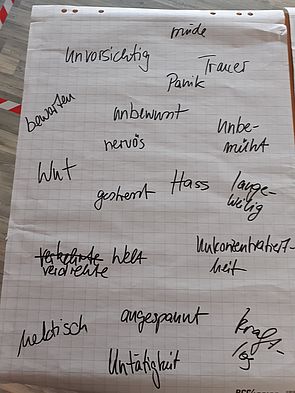 müde
unvorsichtig
Trauer
Panik
bewerten
unbewusst
nervös
unbe-
müht
Wut
gestresst
Hass
lange-
weilig
verkehrte
verdrehte Welt
Unkonzentriert-
heit
hektisch
angespannt
kraft-
los
Untätigkeit